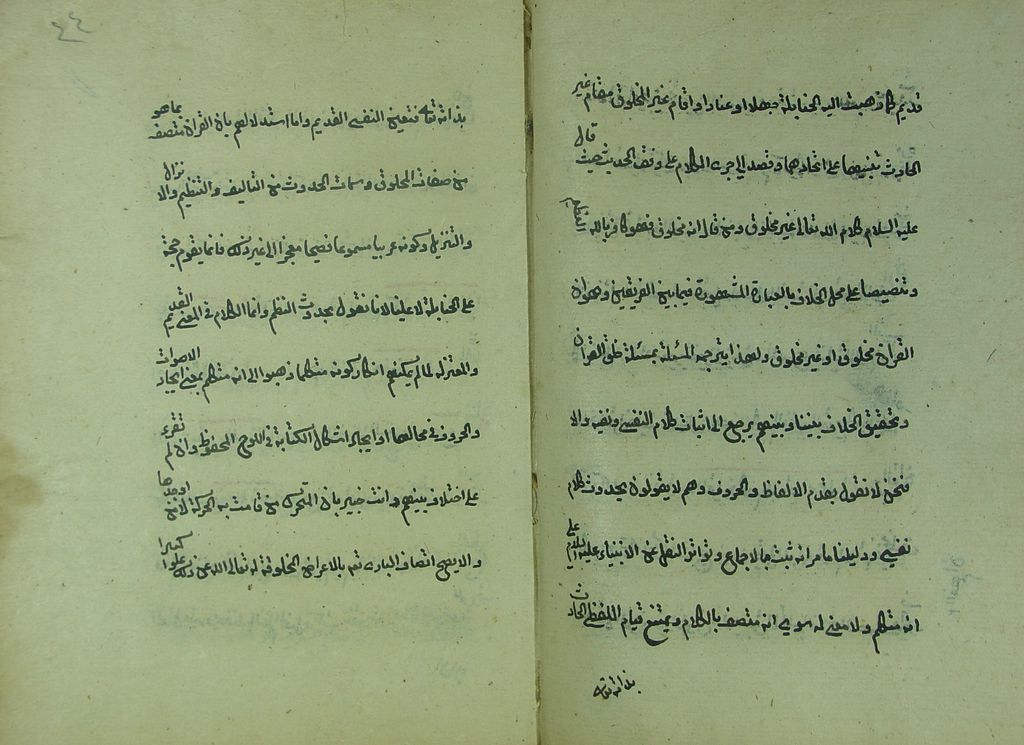 قديم كما ذهبت اليه الحنابلة جهلا او عنادا واقام غير المخلوق مقام غير
الحادث تنبيها على اتحادهما وقصد الى جرى الكلام على وفق الحديث حيث قال
عليه السلام كلام الله تعالى غير مخلوق ومن قال انه مخلوق فهو كافر بالله العظيم
وتنصيصا على محل الخلاف بالعبارة المشهورة فيما بين الفريقين وهو ان
القران مخلوق او غير مخلوق ولهذا يترجم المسئلة بمسئلة خلق القران
وتحقيق الخلاف بيننا وبينهم يرجع الى اثبات كلام النفسى ونفيه والا
فنحن لا نقول بقدم الالفاظ والحروف وهم لا يقولون بحدوث كلام
نفسي ودليلنا ما مر انه ثبت بالاجماع وتواتر النقل عن الانبياء عليهم السلام
انه متكلم ولا معنى له سوى انه متصف بالكلام ويمتنع قيام اللفظى الحادث
بذاته تعالى
٤٤
بذاته تعا فتعين النفسى القديم واما استدلالهم بان القران متصف بما هو
من صفات المخلوق وسمات الحدوث من التاليف والتنظيم والانزال
والتنزيل وكونه عربيا مسموعا فصيحا معجزا الى غير ذلك فانما يقوم حجة
على الحنابلة لا علينا لانا نقول بحدوث النظم وانما الكلام في المعنى القديم
والمعتزلة لما لم يمكنهم انكار كونه متكلما ذهبوا الى انه متكلم بمعنى ايجاد الاصوات
والحروف في محالها او ايجاد اشكال الكتابة في اللوح المحفوظ وان لم تقرء
على اختلاف بينهم وانت خبير بان المتحرك من قامت به الحركة لا من اوجدها
والا يصح اتصاف البارى تع بالاعراض المخلوقة له تعالى الله عن ذلك علوا كبيرا